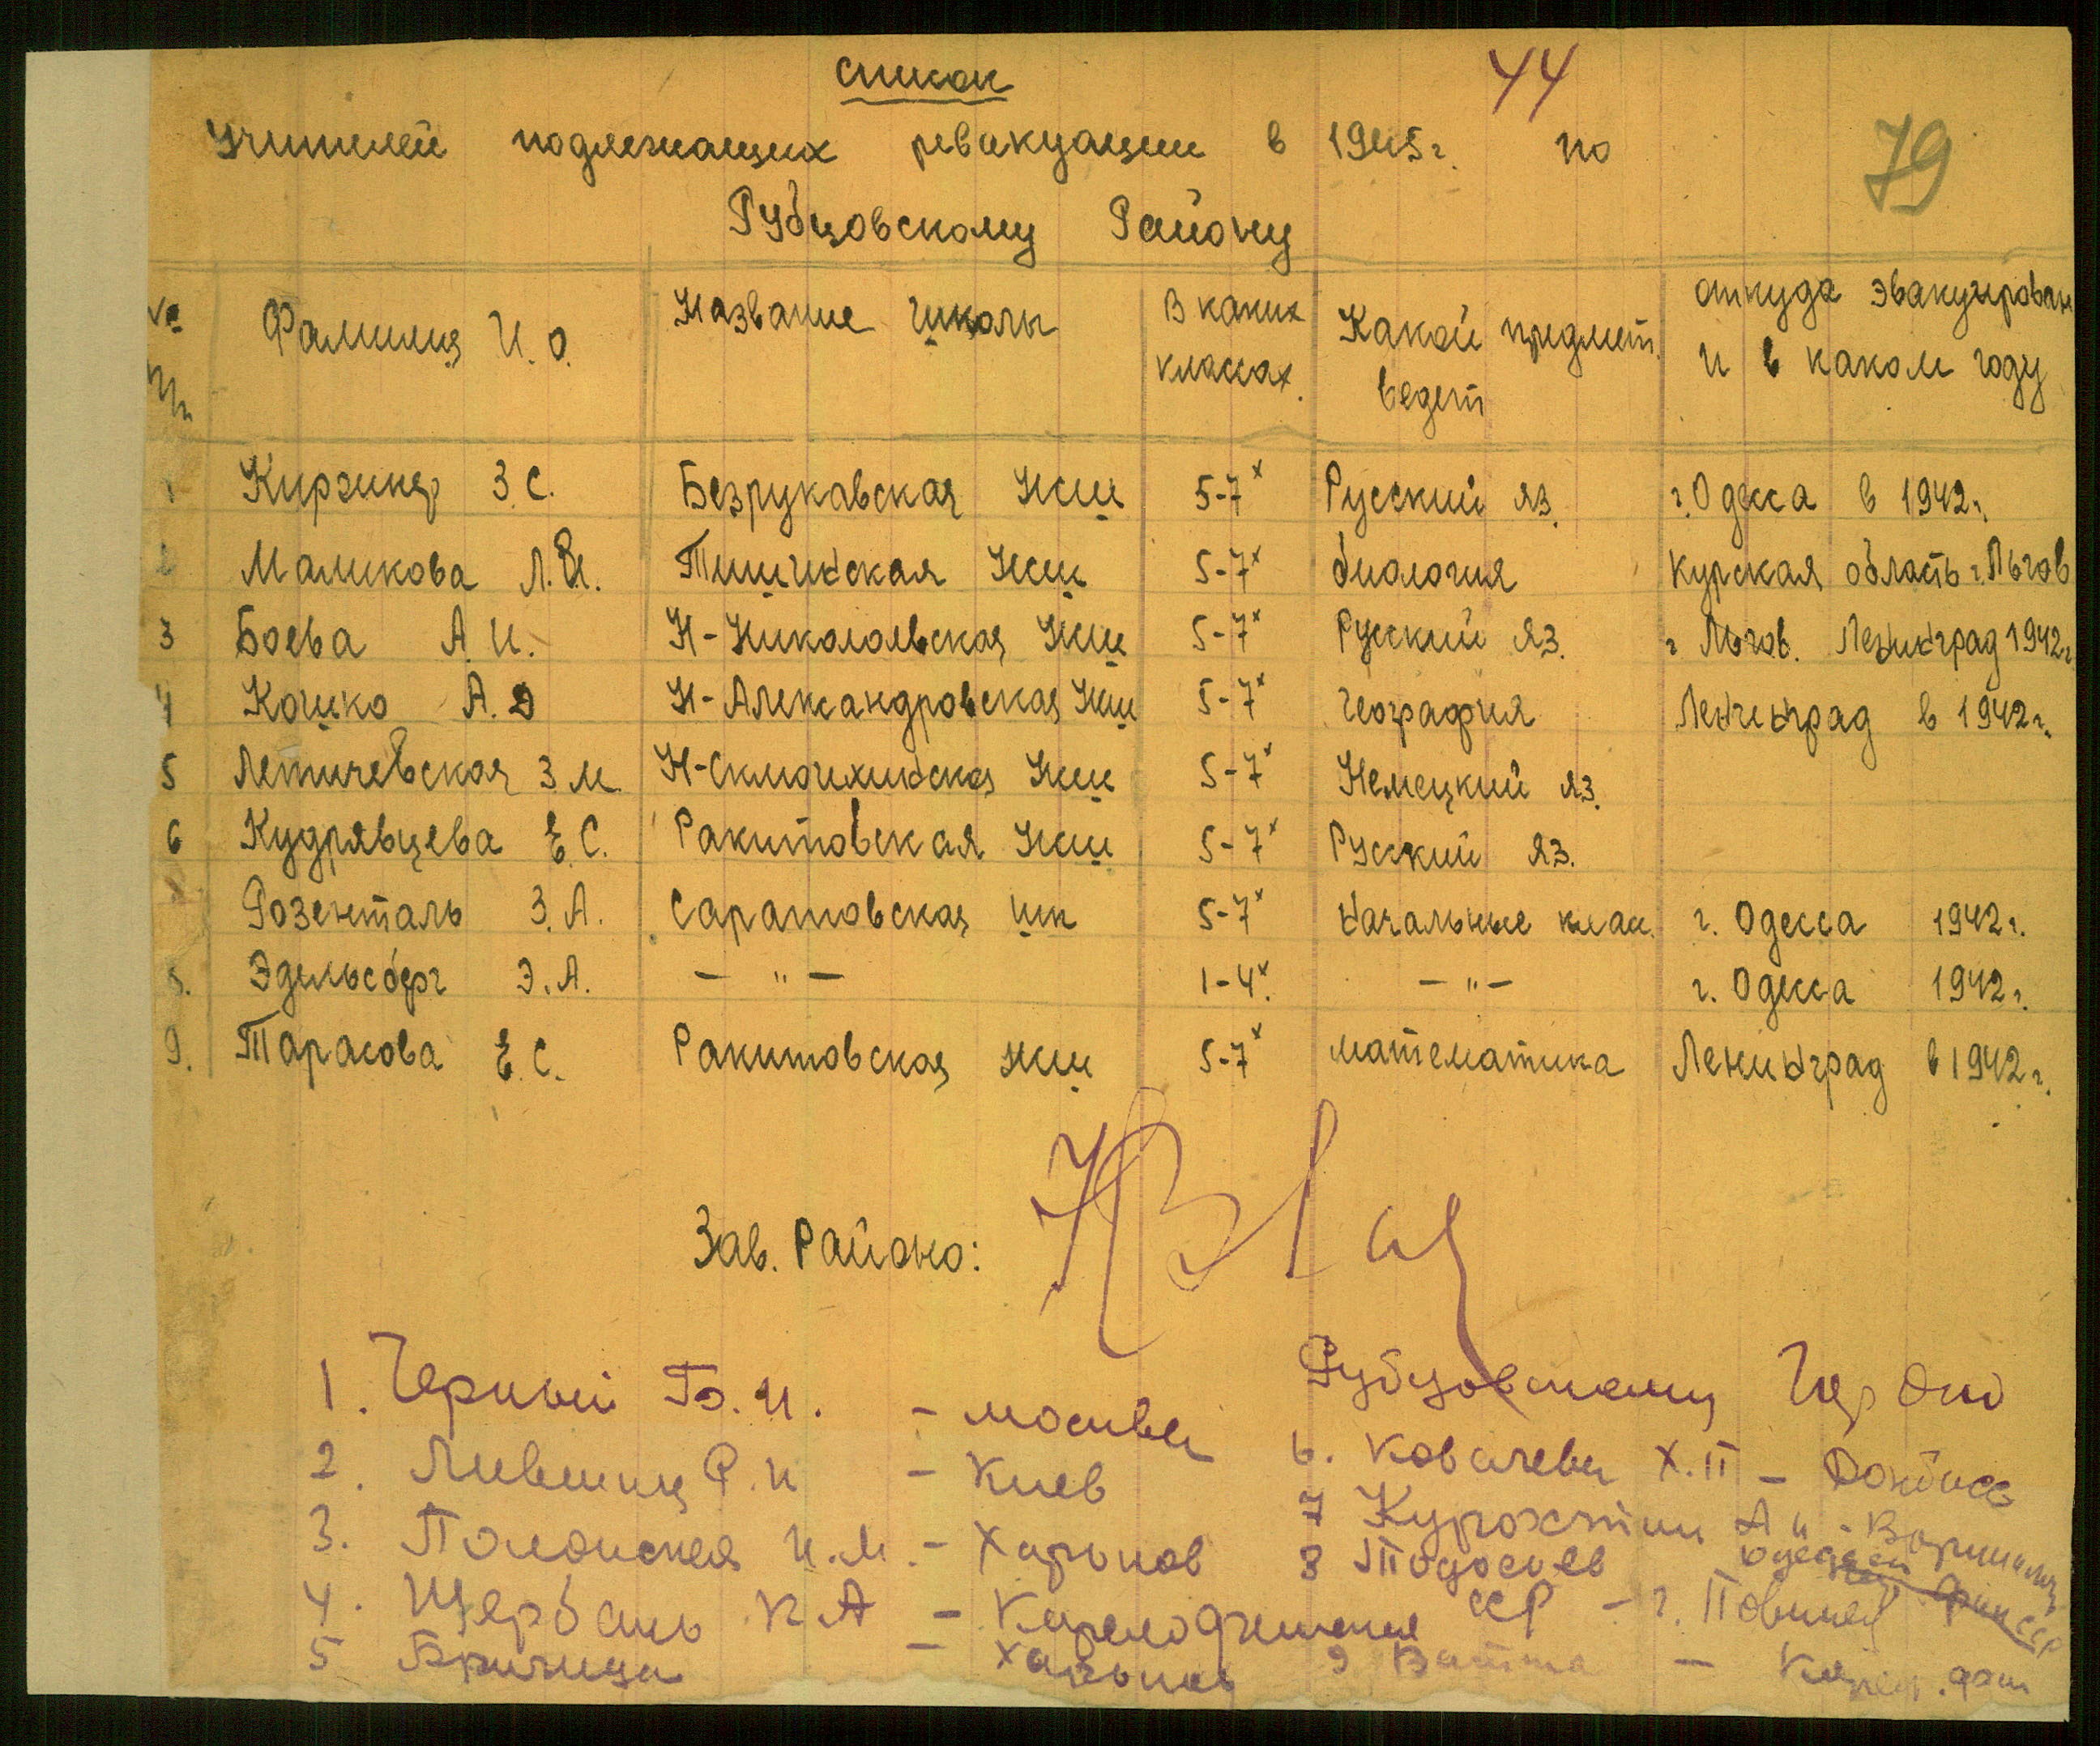 список
44
учителей подлежащих ревакуации в 1945 г. по
79
Рубцовскому Району
№ п/п Фамилия И. О. Название школы В каких классах. Какой предмет ведет откуда эвакуирован и в каком году
1 Киржнер З. С. Безрукавская НСШ 5-7х Русский яз. г. Одесса в 1942 г.
2 Маликова Л. И. Тишинская НСШ 5-7х биология Курская область г. Льгов
3 Боева А. И. Н-Николаевская НСШ 5-7х Русский яз. г Льгов. Ленинград 1942 г
4 Кошко А. Д Н-Александровская НСШ 5-7х география Ленинград в 1942 г.
5 Летичевская З М. Н-Склюихинская НСШ 5-7х Немецкий яз.
6 Кудрявцева Е. С. Ракитовская НСШ 5-7х Русский яз.
Розенталь З. А. Саратовская шк 5-7х начальные клас. г. Одесса 1942 г.
8. Эдельсберг Э. А. — " — 1-4х. — " — г. Одесса 1942 г.
9. Тарасова Е. С. Ракитовская НСШ 5-7х математика Ленинград в 1942 г.
Зав. Районо:
Рубцовскому ГорОно
1. Черный Б. И. — Москва
2. Лившиц Р. И — Киев
3. Полонская И. М. — Харьков
4. Щербань К А — Карелофинская ССР — г. Повенец
5 — Харьков
6. Ковалева Х. П — Донбасс
7 А И -
8
9 — Карел. фин